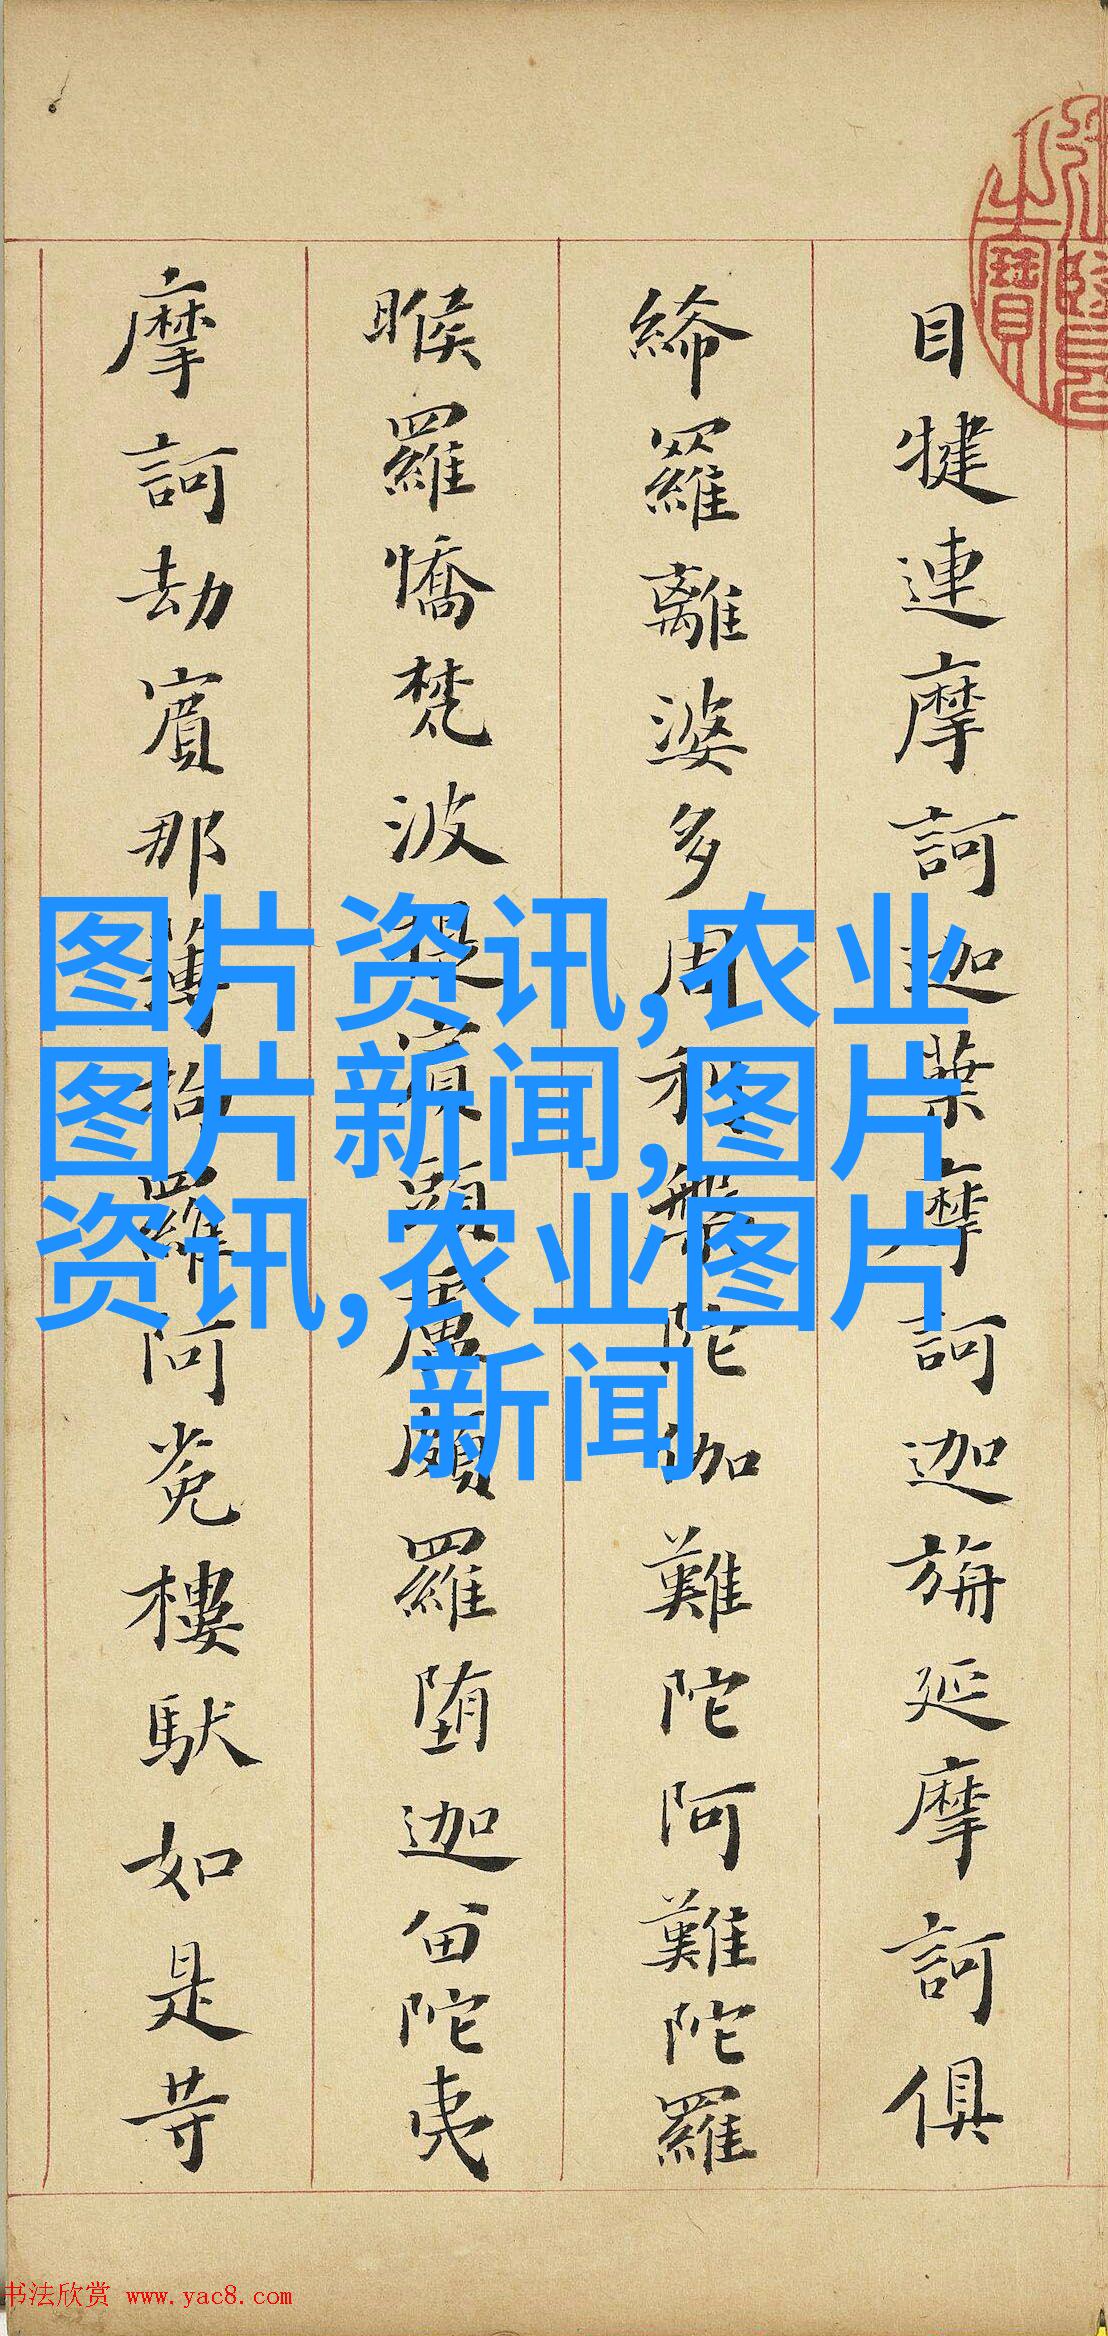 目犍連摩訶迦葉摩訶迦旃延摩訶俱
絺羅離婆多周利槃陀伽難陀阿難陀羅
睺羅憍梵波提賓頭盧頗羅堕迦留陀夷
摩訶劫賓那薄拘羅阿㝹樓馱如是等
图片资讯,农业
图片新闻,图片
资讯,农业图片
新闻
之寶
书法欣赏 www.yac8.com